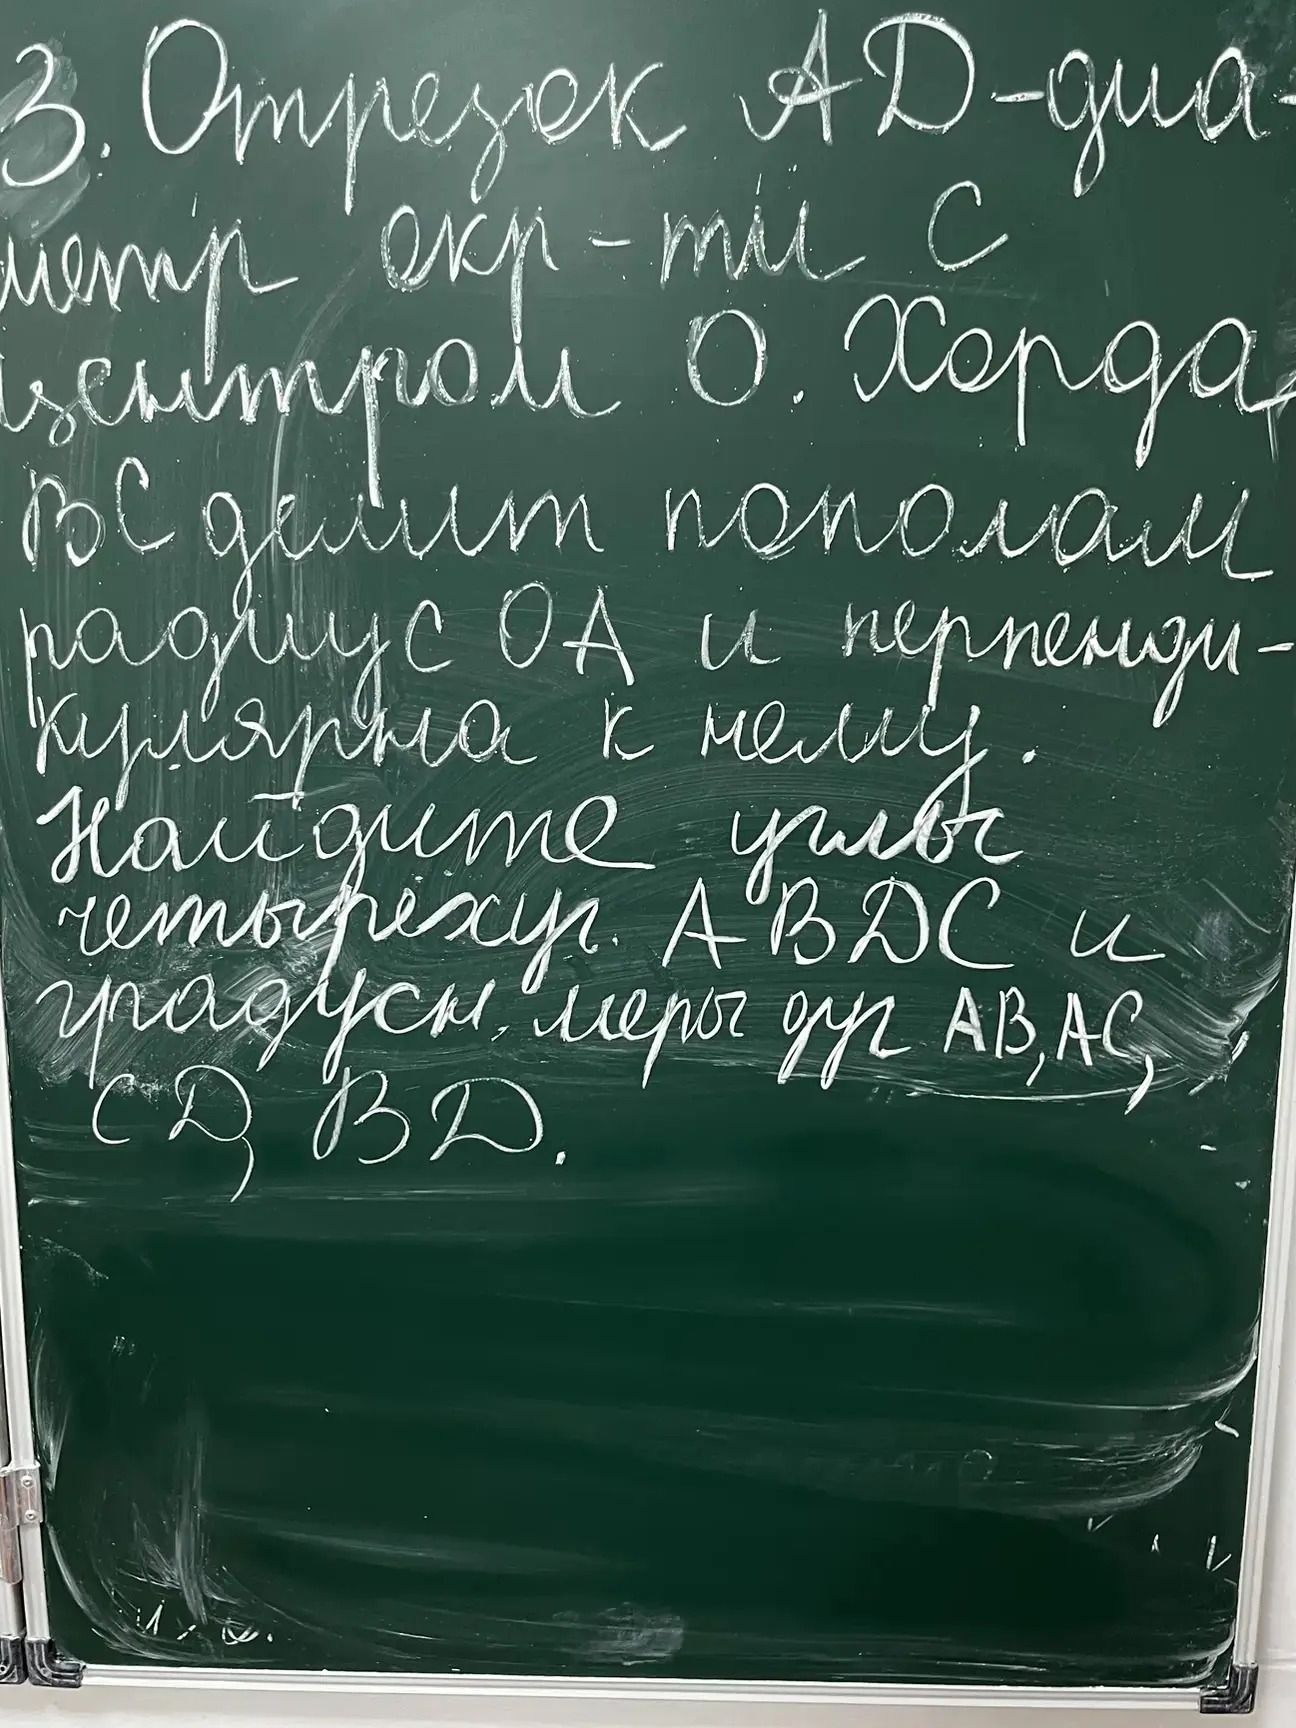 3. Отрезок АД-диа-
метр окр-ти с
центром О. Хорда
ВС делит пополам
радиус ОА и перпенди-
кулярна к нему.
Найдите углы
четырёхуг. АВДС и
градусн. меры дуг АВ, АС,
СД, ВД.